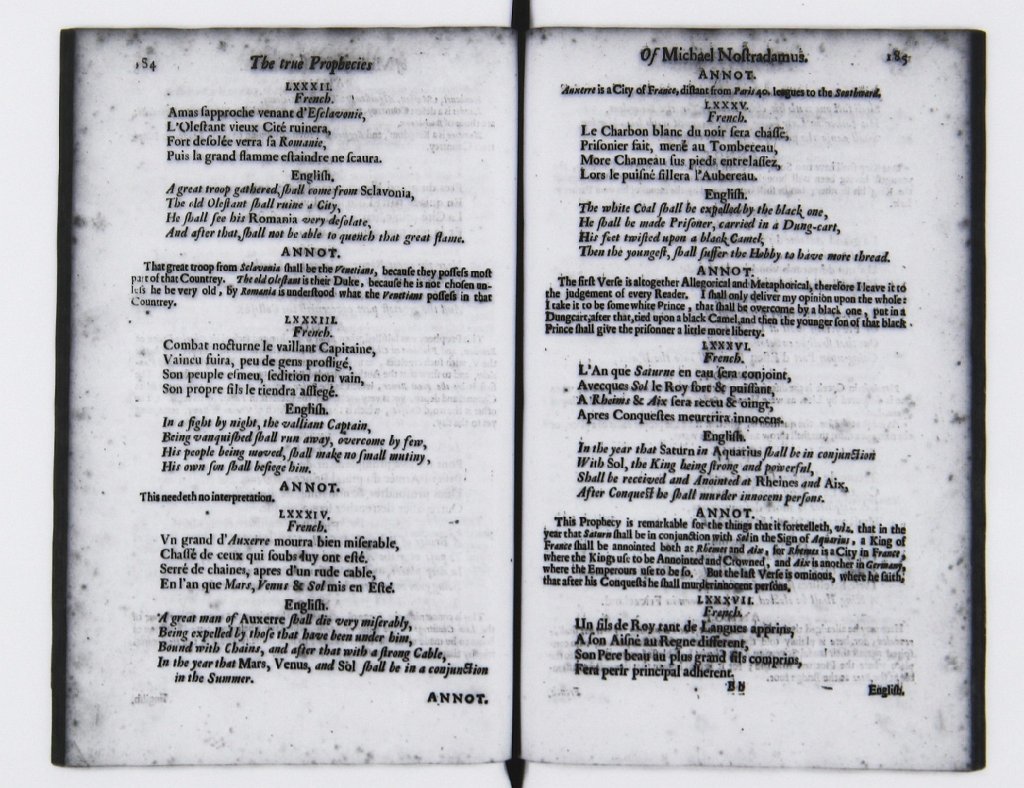 184 The true Prophecies
LXXXII.
French.
Amas ſapproche venant d'Eſclavonie,
L'Oleſtant vieux Cité ruinera,
Fort deſolée verra ſa Romanie,
Puis la grand flamme eſtaindre ne ſcaura.
Engliſh,
A great troop gathered, ſhall come from Sclavonia,
The old Oleſtant ſhall ruine a City,
He ſhall ſee his Romania very deſolate,
And after that, ſhall not be able to quench that great flame.
ANNOT.
That great troop from Sclavonia ſhall be the Venetians, becauſe they poſſeſs moſt
part of that Countrey. The old Oleſtant is their Duke, becauſe he is not choſen un-
leſs he be very old, by Romania is underſtood what the Venetians poſſeſs in that
Countrey.
LXXXIII.
French.
Combat nocturne le vaillant Capitaine,
Vaincu fuira, peu de gens profligé,
Son peuple eſmeu, ſedition non vain,
Son propre fils le tiendra aſſiegé.
Engliſh.
In a fight by night, the valliant Captain,
Being vanquiſhed ſhall run away, overcome by few,
His people being moved, ſhall make no ſmall mutiny,
His own ſon ſhall beſiege him.
ANNOT.
This needeth no interpretation.
LXXXIV.
French.
Vn grand d'Auxerre mourra bien miſerable,
Chaſſé de ceux qui ſoubs luy ont eſté.
Serré de chaines, apres d'un rude cable,
En l'an que Mars, Venus & Sol mis en Eſté.
Engliſh.
A great man of Auxerre ſhall die very miſerably,
Being expelled by thoſe that have been under him,
Bound with Chains, and after that with a ſtrong Cable,
In the year that Mars, Venus, and Sol ſhall be in a conjunction
in the Summer.
ANNOT.
Of Michael Noſtradamus. 185
ANNOT.
Auxerre is a City of France, diſtant from Paris 40. leagues to the Southward.
LXXXV.
French.
Le Charbon blanc du noir ſera chaſſé,
Priſonier fait, mené au Tombereau,
More Chameau ſus pieds entrelaſſez,
Lors le puiſné ſillera l'Aubereau.
Engliſh.
The white Coal ſhall be expelled by the black one,
He ſhall be made Priſoner, carried in a Dung-cart,
His feet twiſted upon a black Camel,
Then the youngeſt, ſhall ſuffer the Hobby to have more thread.
ANNOT.
The firſt Verſe is altogether Allegorical and Metaphorical, therefore I leave it to
the judgement of every Reader. I ſhall only deliver my opinion upon the whole:
I take it to be ſome white Prince, that ſhall be overcome by a black one, put in a
Dungcart, after that, tied upon a black Camel, and then the younger ſon of that black
Prince ſhall give the priſonner a little more liberty.
LXXXVI.
French.
L'An que Saturne en eau ſera conjoint,
Avecques Sol le Roy fort & puiſſant,
A Rheims & Aix ſera receu & oingt,
Apres Conqueſtes meurtrira innocens.
Engliſh.
In the year that Saturn in Aquarius ſhall be in conjunction
With Sol, the King being ſtrong and powerful,
Shall be received and Anointed at Rheines and Aix,
After Conqueſt he ſhall murder innocent perſons.
ANNOT.
This Prophecy is remarkable for the things that it foretelleth, viz. that in the
year that Saturn ſhall be in conjunction with Sol in the Sign of Aquarius, a King of
France ſhall be annointed both at Rheimes and Aix, for Rheimes is a City in France,
where the Kings uſe to be Annointed and Crowned, and Aix is another in Germany,
where the Emperours uſe to be ſo. But the laſt Verſe is ominous, where he ſaith,
that after his Conqueſts he ſhall murder innocent perſons.
LXXXVII.
French.
Un fils de Roy tant de Langues apprins,
A ſon Aiſné au Regne different,
Son Pere beau au plus grand fils comprins,
Fera perir principal adherent.
Bb Engliſh.